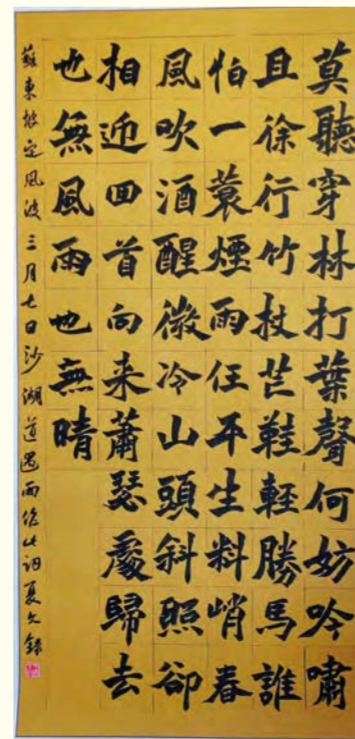 莫聽穿林打葉聲何妨吟嘯
且徐行竹杖芒鞋輕勝馬誰
怕一蓑煙雨任平生料峭春
風吹酒醒微冷山頭斜照卻
相迎回首向来蕭瑟處歸去
也無風雨也無晴
蘇東坡定風波三月七日沙湖道遇雨作此詞夏文錄